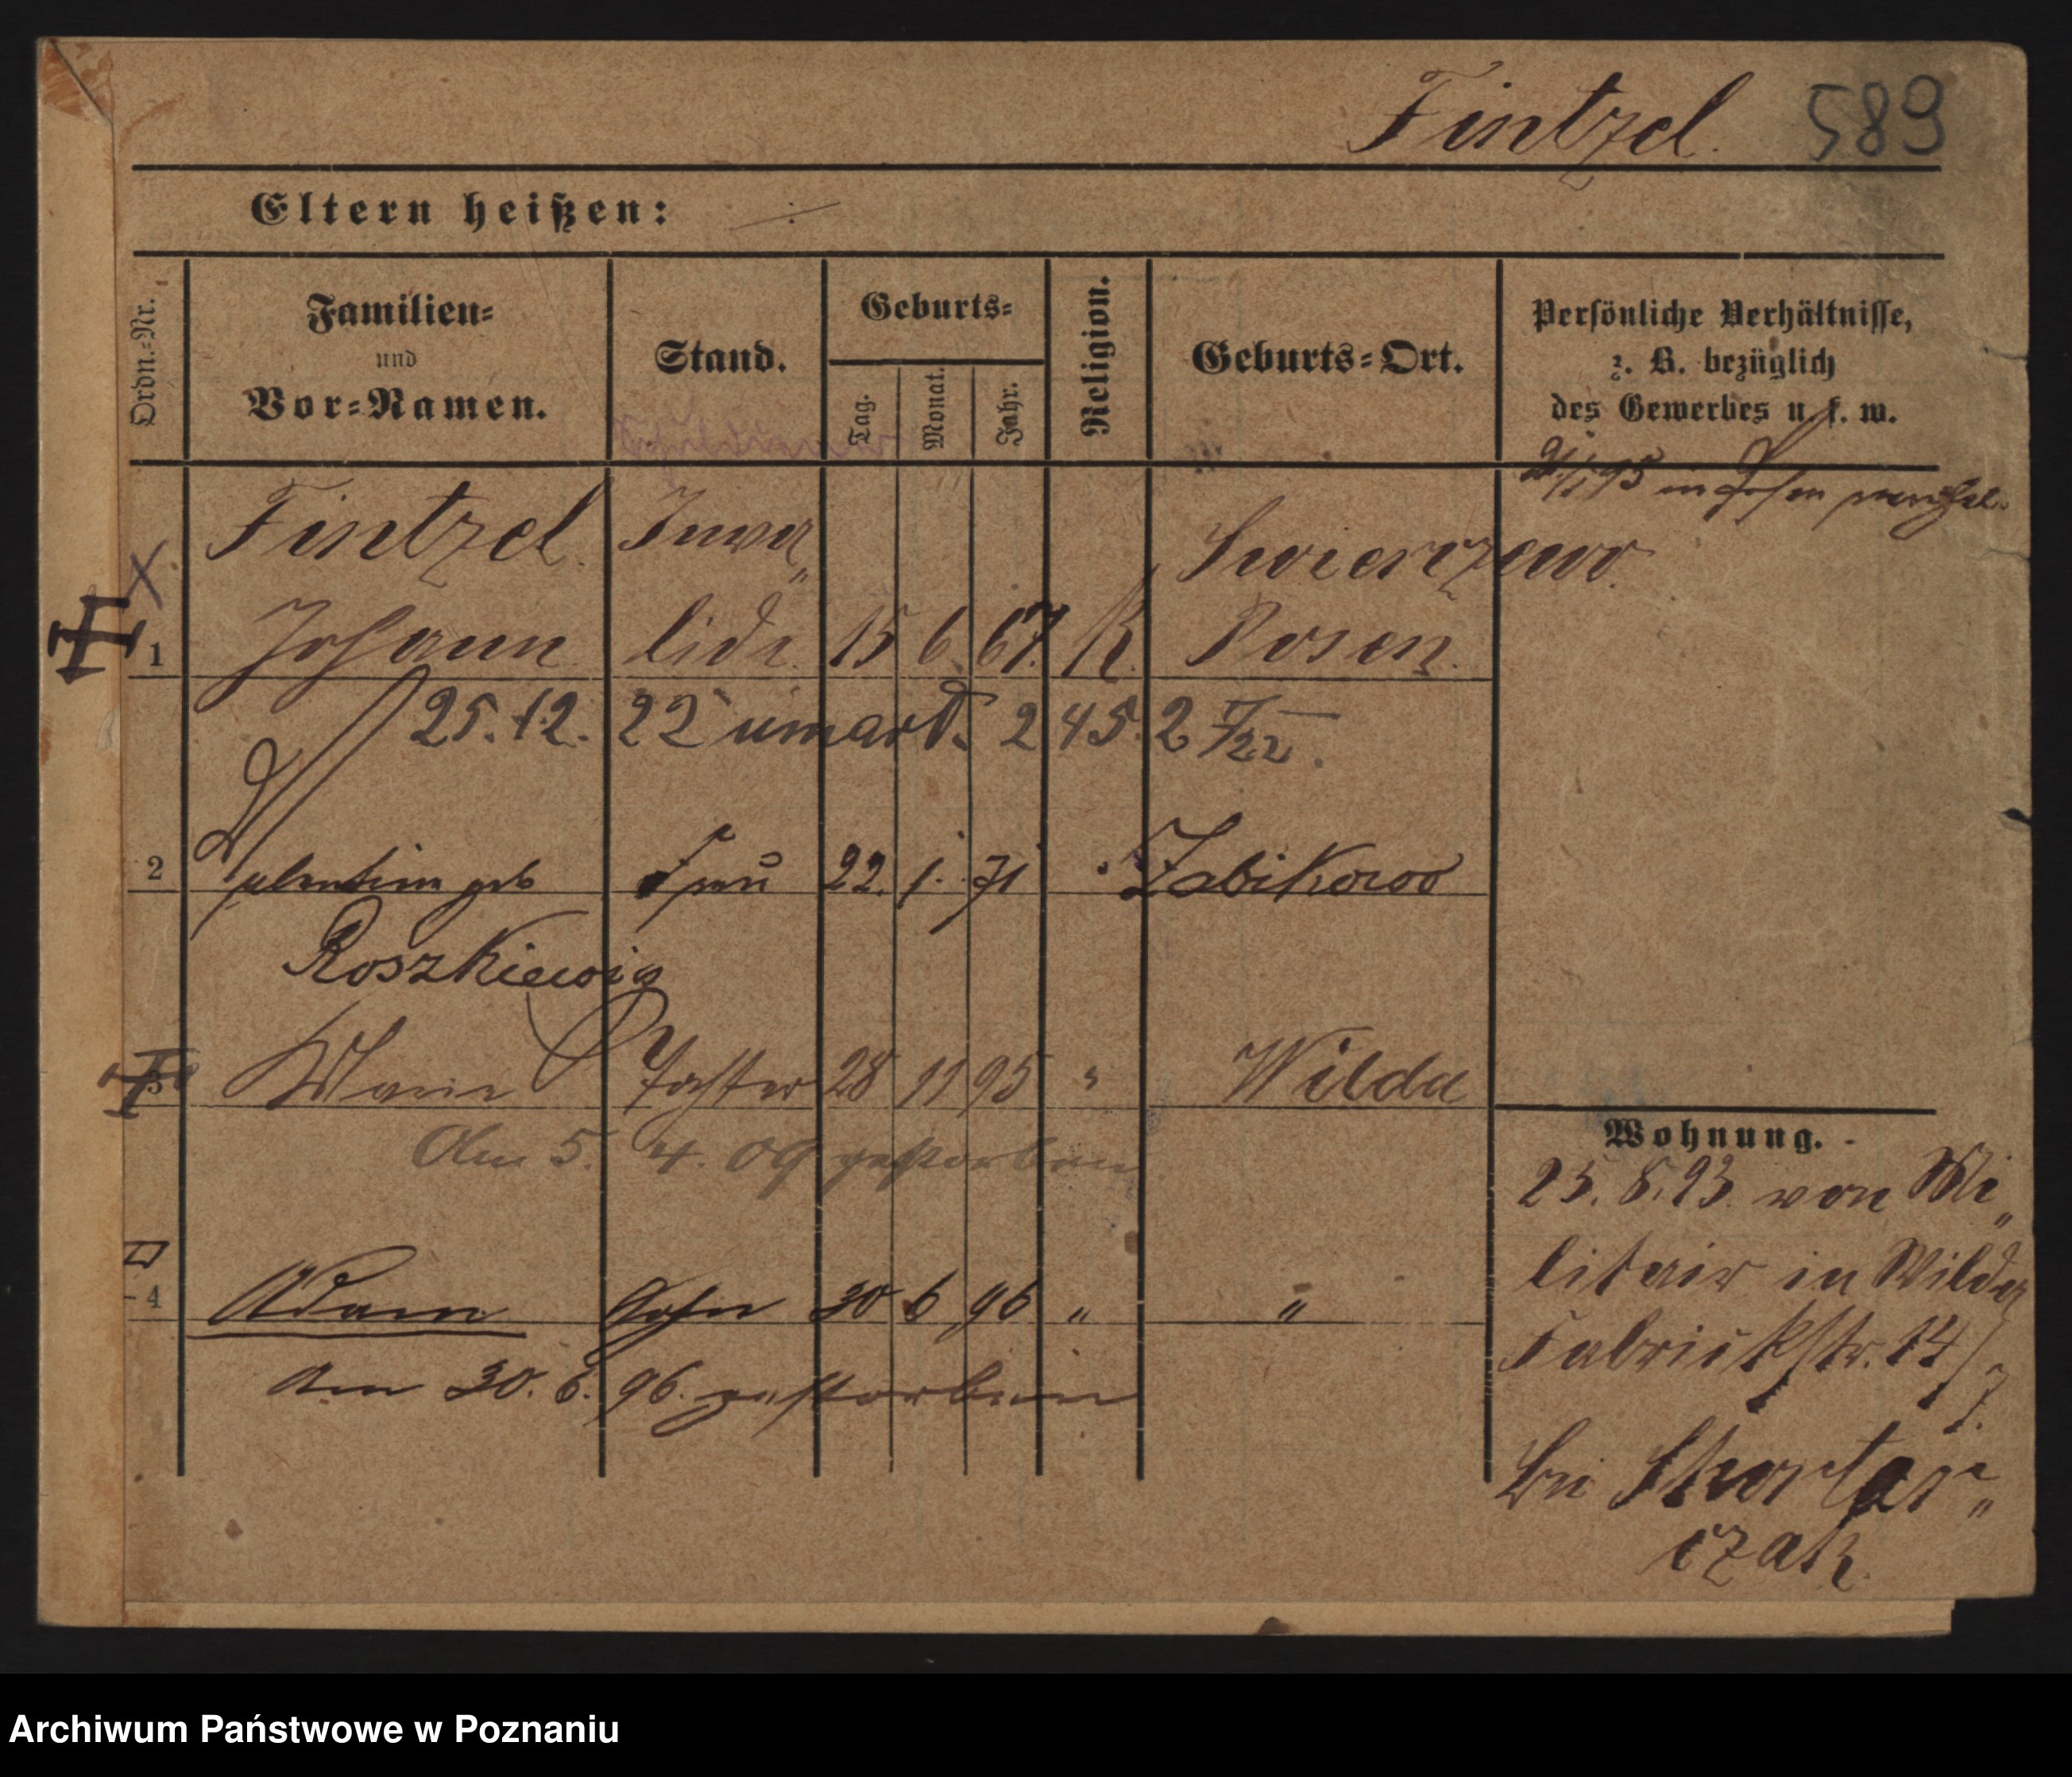 Fintzel. 589
Eltern heißen:
Ordn.-Nr.
Familien-
und
Vor-Namen.
Stand.
Geburts-
Tag.
Monat.
Jahr.
Religion.
Geburts-Ort.
Persönliche Verhältnisse,
z. B. bezüglich
des Gewerbes u. s. w.
95 in Posen
Fintzel Inva„ Swierzewo.
1 Johann lide. 15 6. 67. K. Posen.
25.12. 22 umard. 245.2
2 geb Frau 22. 1. 71 Zabikowo
Roszkiewig
3 Marie Tochter 28 11 95 " Wilda
Am 5. 4. 09 gestorben
4 Adam Sohn 30 6 96 " "
Am 30. 6. 96. gestorben
Wohnung.
25. 8. 93. von Mi„
litair in Wilda
Fabrickstr. 14/7.
bei Skortar„
czak.
Archiwum Państwowe w Poznaniu